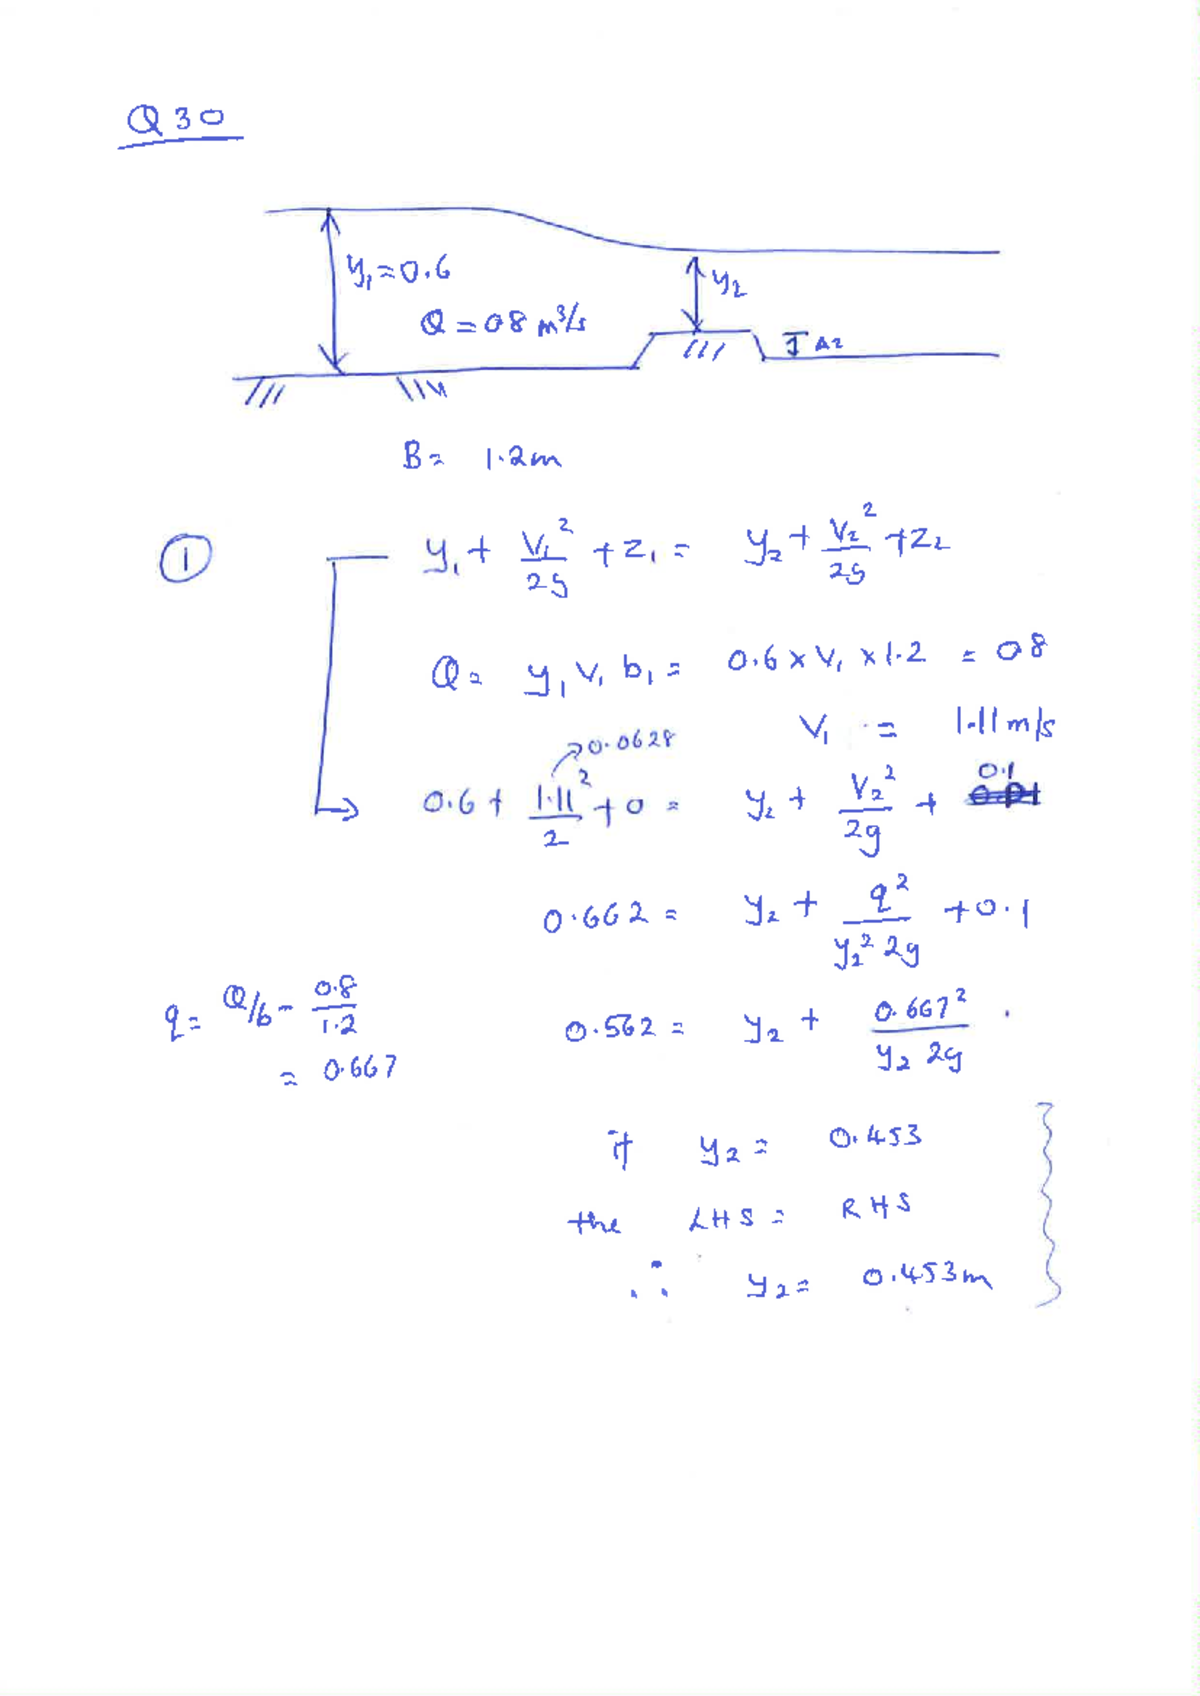 Q30
y₁=0.6
Q = 08 m³/s
y₂
Δz
B= 1.2m
① y₁ + V₁²/2g + z₁ = y₂ + V₂²/2g + z₂
Q = y₁ V₁ b₁ = 0.6 x V₁ x 1.2 = 08
V₁ = 1.11 m/s
0.0628
0.1
0.6 + 1.11²/2 + 0 = y₂ + V₂²/2g +
0.662 = y₂ + q²/y₂² 2g + 0.1
q = Q/b - 0.8/1.2
= 0.667
0.562 = y₂ + 0.667²/y₂ 2g
if y₂ = 0.453
the LHS = RHS
∴ y₂ = 0.453m